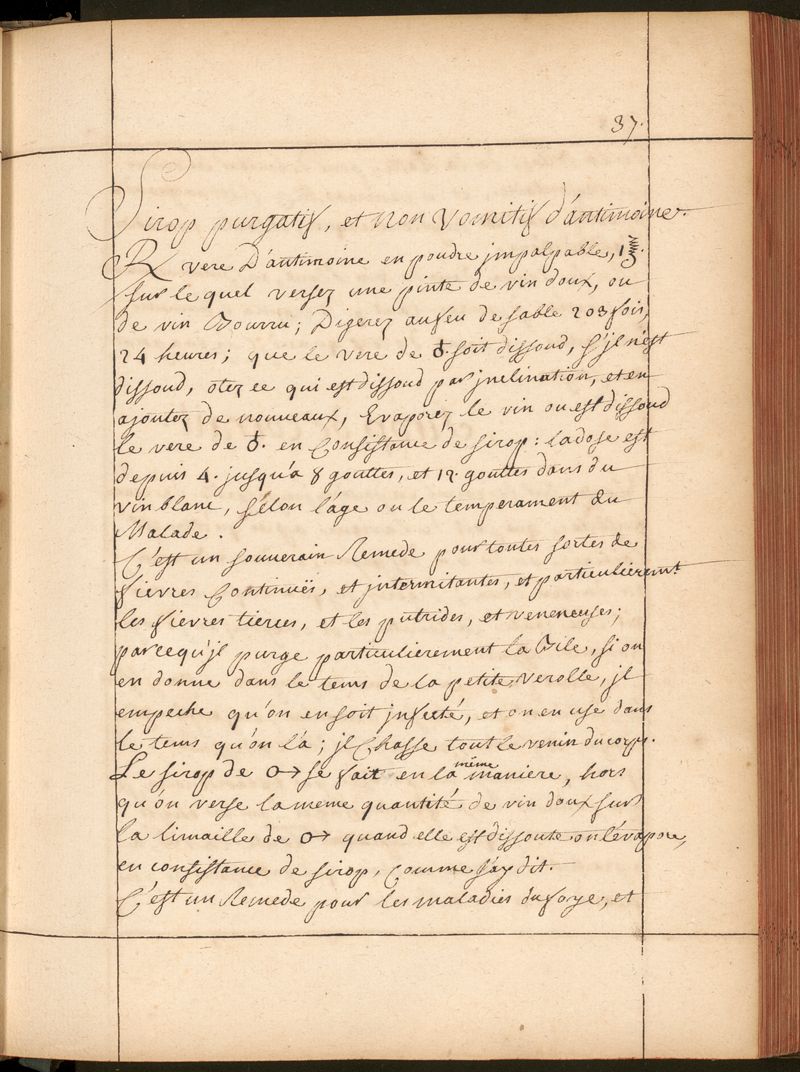 37.
Sirop purgatif, et non Vomitif d'antimoine.
℞ vere D'antimoine en poudre jmpalpable, 1 ℥.
sur le quel versez une pinte de vin doux, ou
de vin Bourru; Digerez au feu de sable 2 o 3 fois,
24 heures; que le vere de ♁. soit dissoud, s'jl n'est
dissoud, otez ce qui est dissoud par jnclination, et en
ajoutez de nouveaux, Evaporez le vin ou est dissoud
le vere de ♁. en Consistance de sirop: la dose est
depuis 4. jusqu'a 8 gouttes, et 12. gouttes dans du
vin blanc, sélon l'áge ou le temperament du
Malade.
C'est un souverain Remede pour toutes sortes de
fievres Continuës, et jntermitantes, et particulierem.t
les fievres tierces, et les putrides, et veneneuses;
parcequ'jl purge particulierement la Bile, si on
en donne dans le tems de la petite verolle, jl
empeche qu'on en soit jnfecté, et on en use dans
le tems qu'on l'a; jl Chasse tout le venin du corps.
Le sirop de ♂ se fait en la même maniere, hors
qu'on verse la meme quantité de vin doux sur
la limaille de ♂ quand elle est dissoute on l'évapore,
en consistance de sirop, Comme j'ay dit.
C'est un Remede pour les maladies du foye, et